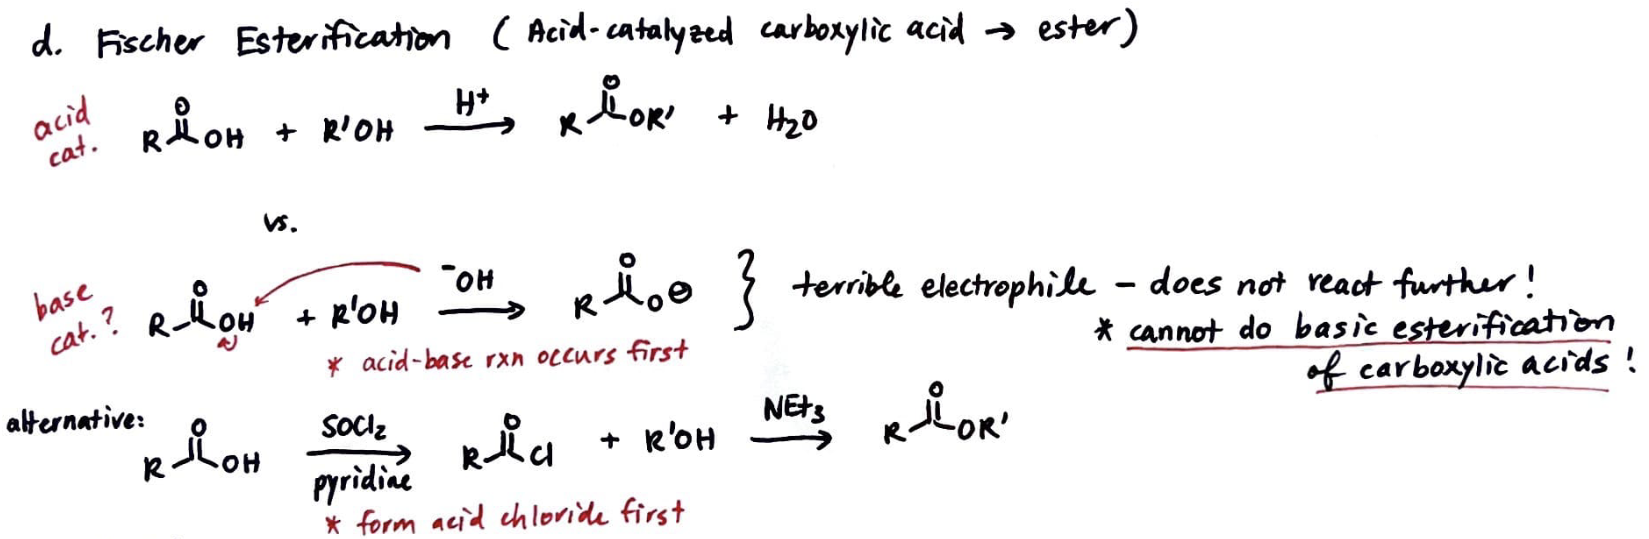 d. Fischer Esterification (Acid-catalyzed carboxylic acid → ester)
acid cat.
R O OH + R'OH H+ → R O OR' + H2O
vs.
base cat.?
R O OH + R'OH -OH → R O O⊖ } terrible electrophile - does not react further!
* acid-base rxn occurs first
* cannot do basic esterification
of carboxylic acids!
alternative:
R O OH SOCl2 pyridine → R O Cl + R'OH NEt3 → R O OR'
* form acid chloride first